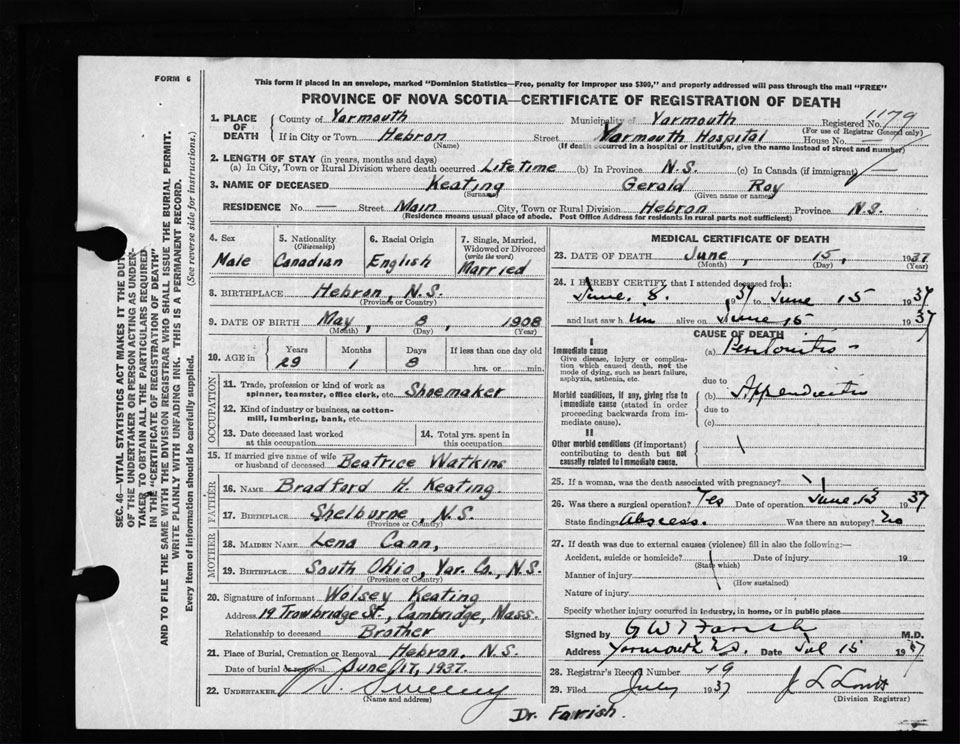 FORM 6
This form if placed in an envelope, marked "Dominion Statistics—Free, penalty for improper use $300," and properly addressed will pass through the mail "FREE"
PROVINCE OF NOVA SCOTIA—CERTIFICATE OF REGISTRATION OF DEATH
SEC. 46—VITAL STATISTICS ACT MAKES IT THE DUTY
OF THE UNDERTAKER OR PERSON ACTING AS UNDER-
TAKER TO OBTAIN ALL THE PARTICULARS REQUIRED
IN THE "CERTIFICATE OF REGISTRATION OF DEATH"
AND TO FILE THE SAME WITH THE DIVISION REGISTRAR WHO SHALL ISSUE THE BURIAL PERMIT.
WRITE PLAINLY WITH UNFADING INK. THIS IS A PERMANENT RECORD.
Every item of information should be carefully supplied. (See reverse side for instructions.)
1. PLACE OF DEATH County of Yarmouth Municipality of Yarmouth Registered No. 1179
(For use of Registrar General only)
If in City or Town Hebron Street Yarmouth Hospital House No. —
(Name) (If death occurred in a hospital or institution, give the name instead of street and number)
2. LENGTH OF STAY (in years, months and days)
(a) In City, Town or Rural Division where death occurred Lifetime (b) In Province N.S. (c) In Canada (if immigrant) —
3. NAME OF DECEASED Keating Gerald Roy
(Surname) (Given name or names)
RESIDENCE No. — Street Main City, Town or Rural Division Hebron Province N.S.
(Residence means usual place of abode. Post Office Address for residents in rural parts not sufficient)
4. Sex 5. Nationality (Citizenship) 6. Racial Origin 7. Single, Married, Widowed or Divorced (write the word)
Male Canadian English Married
8. BIRTHPLACE Hebron, N.S.
(Province or Country)
9. DATE OF BIRTH May, 8, 1908
(Month) (Day) (Year)
10. AGE in Years Months Days If less than one day old
29 1 8 hrs. or min.
OCCUPATION
11. Trade, profession or kind of work as
spinner, teamster, office clerk, etc. Shoemaker
12. Kind of industry or business, as cotton-
mill, lumbering, bank, etc.
13. Date deceased last worked
at this occupation
14. Total yrs. spent in
this occupation
15. If married give name of wife
or husband of deceased Beatrice Watkins
FATHER
16. NAME Bradford H. Keating.
17. BIRTHPLACE Shelburne, N.S.
(Province or Country)
MOTHER
18. MAIDEN NAME Lena Cann,
19. BIRTHPLACE South Ohio, Yar. Co., N.S.
(Province or Country)
20. Signature of informant Wolsey Keating
Address 19 Trowbridge St., Cambridge, Mass.
Relationship to deceased Brother
21. Place of Burial, Cremation or Removal Hebron, N.S.
Date of burial or removal June 17, 1937.
22. UNDERTAKER Sweeny
(Name and address)
MEDICAL CERTIFICATE OF DEATH
23. DATE OF DEATH June, 15, 1937
(Month) (Day) (Year)
24. I HEREBY CERTIFY that I attended deceased from:
June 8. 1937 to June 15 1937
and last saw him alive on June 15 1937
CAUSE OF DEATH
I
Immediate cause
Give disease, injury or complica-
tion which caused death, not the
mode of dying, such as heart failure,
asphyxia, asthenia, etc.
(a) Peritonitis —
due to
Morbid conditions, if any, giving rise to
immediate cause (stated in order
proceeding backwards from im-
mediate cause).
(b) Appendicitis
due to
(c)
II
Other morbid conditions (if important)
contributing to death but not
causally related to immediate cause.
25. If a woman, was the death associated with pregnancy?
26. Was there a surgical operation? Yes Date of operation June 15 1937
State findings Abscess. Was there an autopsy? No
27. If death was due to external causes (violence) fill in also the following:—
Accident, suicide or homicide? Date of injury 19
(State which)
Manner of injury
(How sustained)
Nature of injury
Specify whether injury occurred in industry, in home, or in public place
Signed by G W T Farish M.D.
Address Yarmouth N.S. Date Jul 15 1937
28. Registrar's Record Number 79
29. Filed July 1937 J L Lovitt
(Division Registrar)
Dr. Farrish.